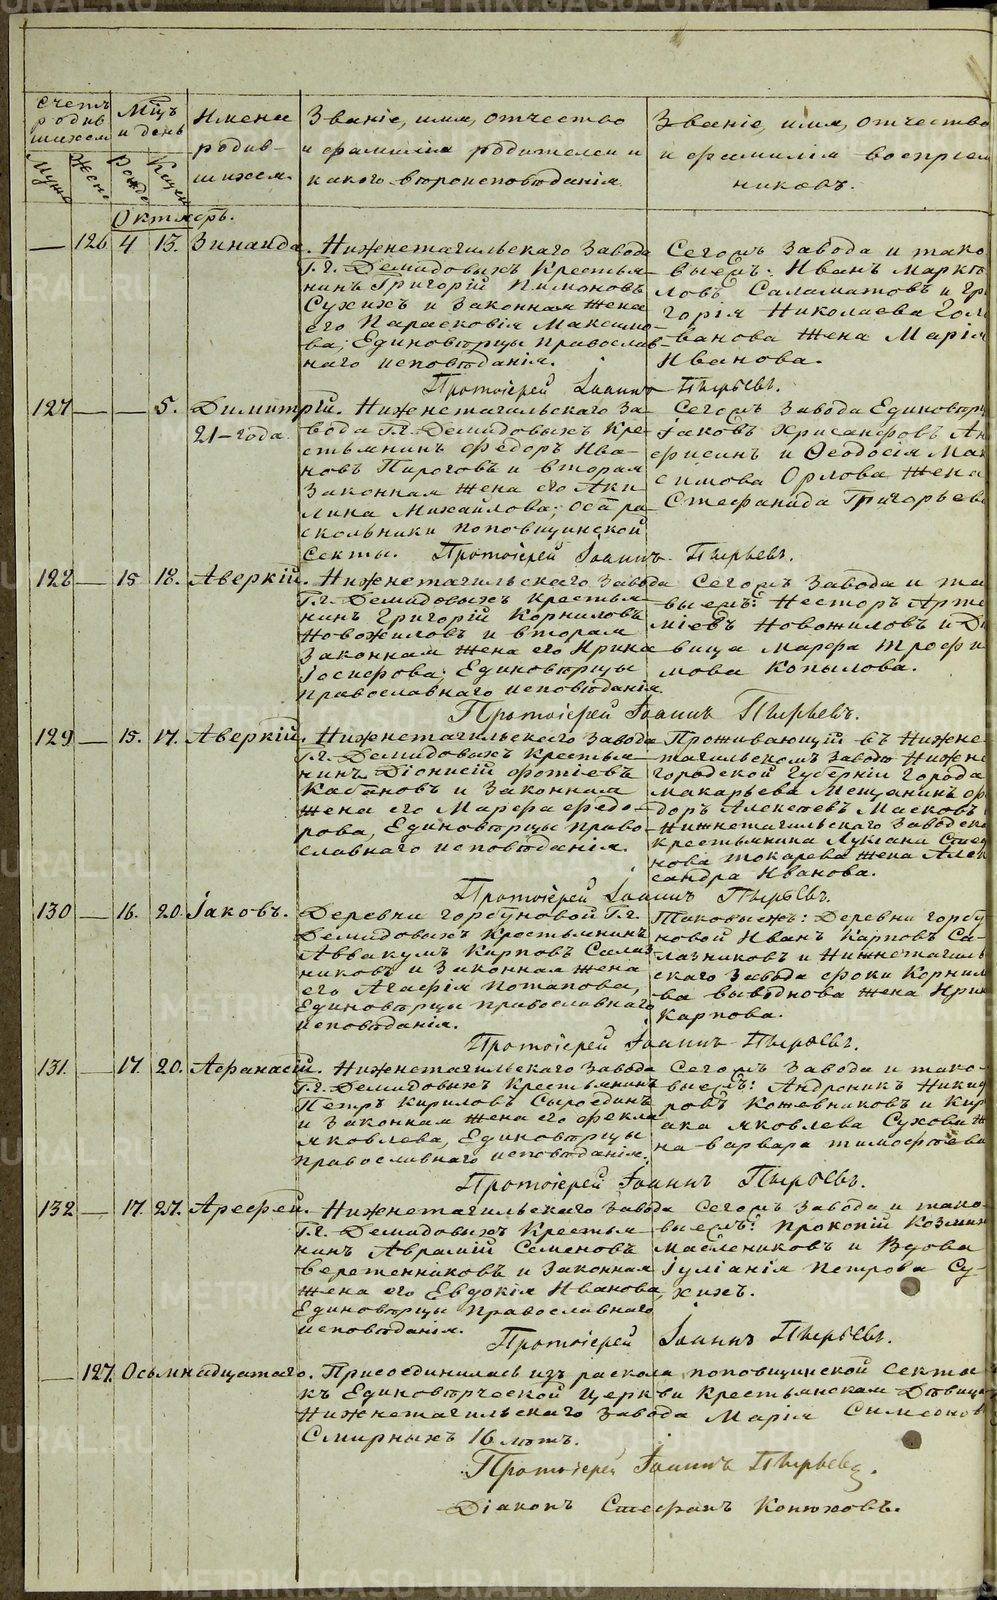 Счетъ родившихся
Мужс. Женс.
Мцъ и день
Рожд. Крещ.
Имена родив-
шихся.
Званіе, имя, отчество
и фамилія родителей и
какого вѣроисповѣданія.
Званіе, имя, отчество
и фамилія воспріем
никовъ.
Октябрь.
— 126 4 13. Зинаида.
Нижнетагильскаго завода
Г.г. Демидовыхъ Крестья-
нинъ Григорій Пимоновъ
Сухихъ и законная жена
его Парасковія Максимо-
ва; Единовѣрцы православ-
наго исповѣданія.
Сегожъ завода и тако
выежъ: Иванъ Маркѣ
ловъ Саламатовъ и Гри
горья Николаева Гол
ванова жена Марія
Иванова.
Протоіерей Іоаннъ Пырьевъ.
127 — — 5. Димитрій.
21-года.
Нижнетагильскаго за-
вода Г.г. Демидовыхъ Кре-
стьянинъ Федоръ Ива-
новъ Пироговъ и вторая
законная жена его Аки-
лина Михайлова; оба ра-
скольники поповщинской
секты.
Сегожъ завода Единовѣр
Іаковъ Хрисанфовъ Ан
фисинъ и Ѳеодосія Мак
симова Орлова жена
Стефанида Григорьева
Протоіерей Іоаннъ Пырьевъ.
128 — 15 18. Аверкій.
Нижнетагильскаго завода
Г.г. Демидовыхъ крестья-
нинъ Григорій Корниловъ
Новожиловъ и вторая
законная жена его Ирина
Іосифова; Единовѣрцы
православнаго исповѣданія.
Сегожъ завода и та
выежъ: Несторъ Арте
міевъ Новожиловъ и Дѣ
вица Марфа Трофи
мова Копылова.
Протоіерей Іоаннъ Пырьевъ.
129 — 15. 17. Аверкій.
Нижнетагильскаго завода
Г.г. Демидовыхъ крестья-
нинъ Діонисій Фотіевъ
Кабановъ и законная
жена его Марфа Федо-
рова, Единовѣрцы право-
славнаго исповѣданія.
Проживающій въ Нижне-
тагильскомъ заводѣ Ниже
городской Губерніи города
Макарьева Мещанинъ Фе
доръ Алексѣевъ Масковъ
Нижнетагильскаго заводско
крестьянина Лукіана Степ
нова Токарева жена Алек
сандра Иванова.
Протоіерей Іоаннъ Пырьевъ.
130 — 16. 20. Іаковъ.
Деревни Горбуновой Г.г.
Демидовыхъ Крестьянинъ
Аввакумъ Карповъ Салаз-
никовъ и законная жена
его Агафія Потапова,
Единовѣрцы православнаго
исповѣданія.
Таковыежъ: Деревни Горбу
новой Иванъ Карповъ Са-
лазниковъ и Нижнетагиль
скаго завода Фоки Корнил
ва Вывѣднова жена Ирин
Карпова.
Протоіерей Іоаннъ Пырьевъ.
131. — 17. 20. Афанасій.
Нижнетагильскаго завода
Г.г. Демидовыхъ Крестьянинъ
Петръ Кириловъ Сыроединъ
и законная жена его Фекла
Яковлева, Единовѣрцы
православнаго исповѣданія.
Сегожъ завода и тако-
выежъ: Андроникъ Никиф
ровъ Кожевниковъ и Кир
ака Яковлева Сухова ж
на Варвара Тимофѣева
Протоіерей Іоаннъ Пырьевъ.
132 — 17. 27. Арефей.
Нижнетагильскаго завода
Г.г. Демидовыхъ Крестья-
нинъ Аврамій Семеновъ
Веретенниковъ и законная
жена его Евдокія Иванова,
Единовѣрцы православнаго
исповѣданія.
Сегожъ завода и тако-
выежъ: Прокопій Козмин
Маслениковъ и Вдова
Іуліанія Петрова Су-
хихъ.
Протоіерей Іоаннъ Пырьевъ.
— 127. Осьмнадцатаго. Присоединилась изъ раскола поповщинской секты
къ Единовѣрческой Церкви Крестьянская Дѣвица
Нижнетагильскаго завода Марія Симеонов
Смирныхъ 16 лѣтъ.
Протоіерей Іоаннъ Пырьевъ.
Діаконъ Стефанъ Конюховъ.
METRIKI.GASO-URAL.RU